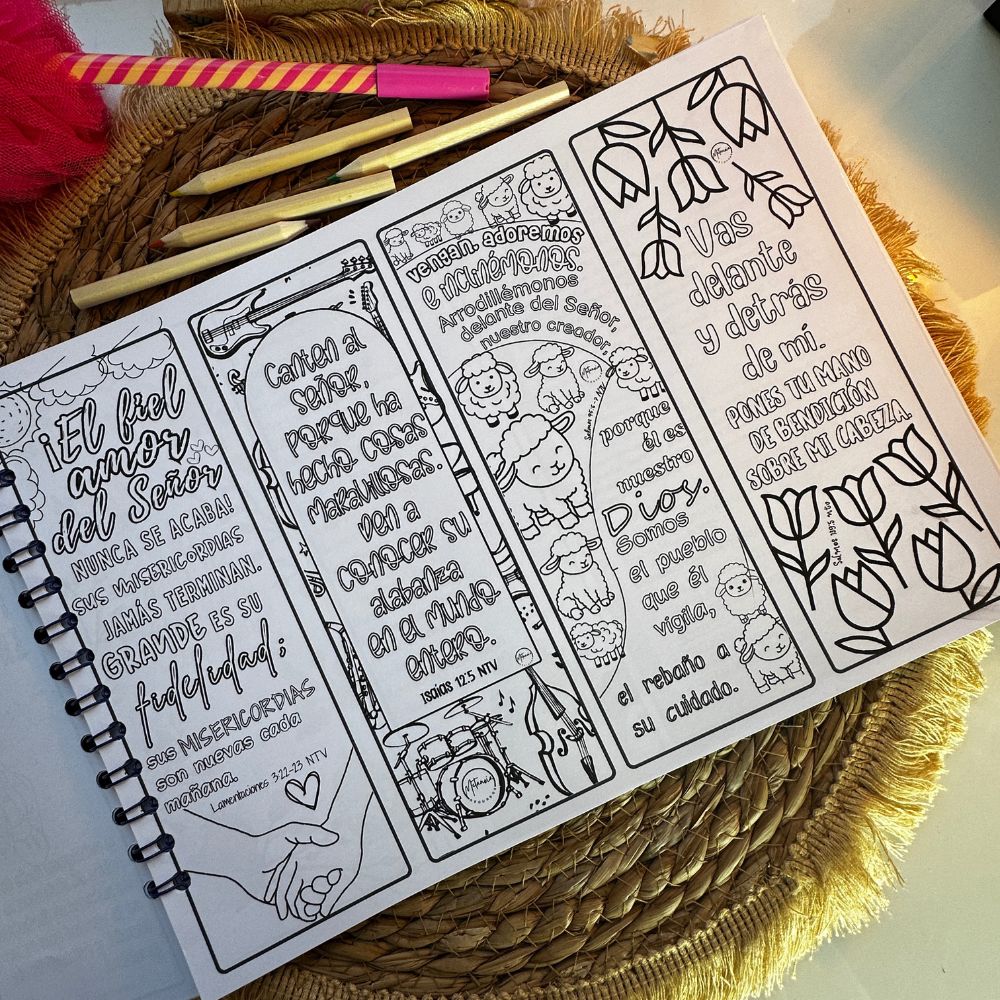 ¡El fiel
amor
del Señor
NUNCA SE ACABA!
sus misericordias
JAMÁS TERMINAN.
GRANDE ES SU
fidelidad;
sus MISERICORDIAS
son nuevas cada
mañana.
Lamentaciones 3:22-23 NTV
Canten al
Señor,
porque ha
hecho cosas
maravillosas.
Den a
conocer su
alabanza
en el mundo
entero.
Isaías 12:5 NTV
vengan, adoremos
e inclinémonos.
Arrodillémonos
delante del Señor,
nuestro creador,
porque
él es
nuestro
Dios.
Somos
el pueblo
que él
vigila,
el rebaño a
su cuidado.
Vas
delante
y detrás
de mí.
PONES TU MANO
DE BENDICIÓN
SOBRE MI CABEZA.